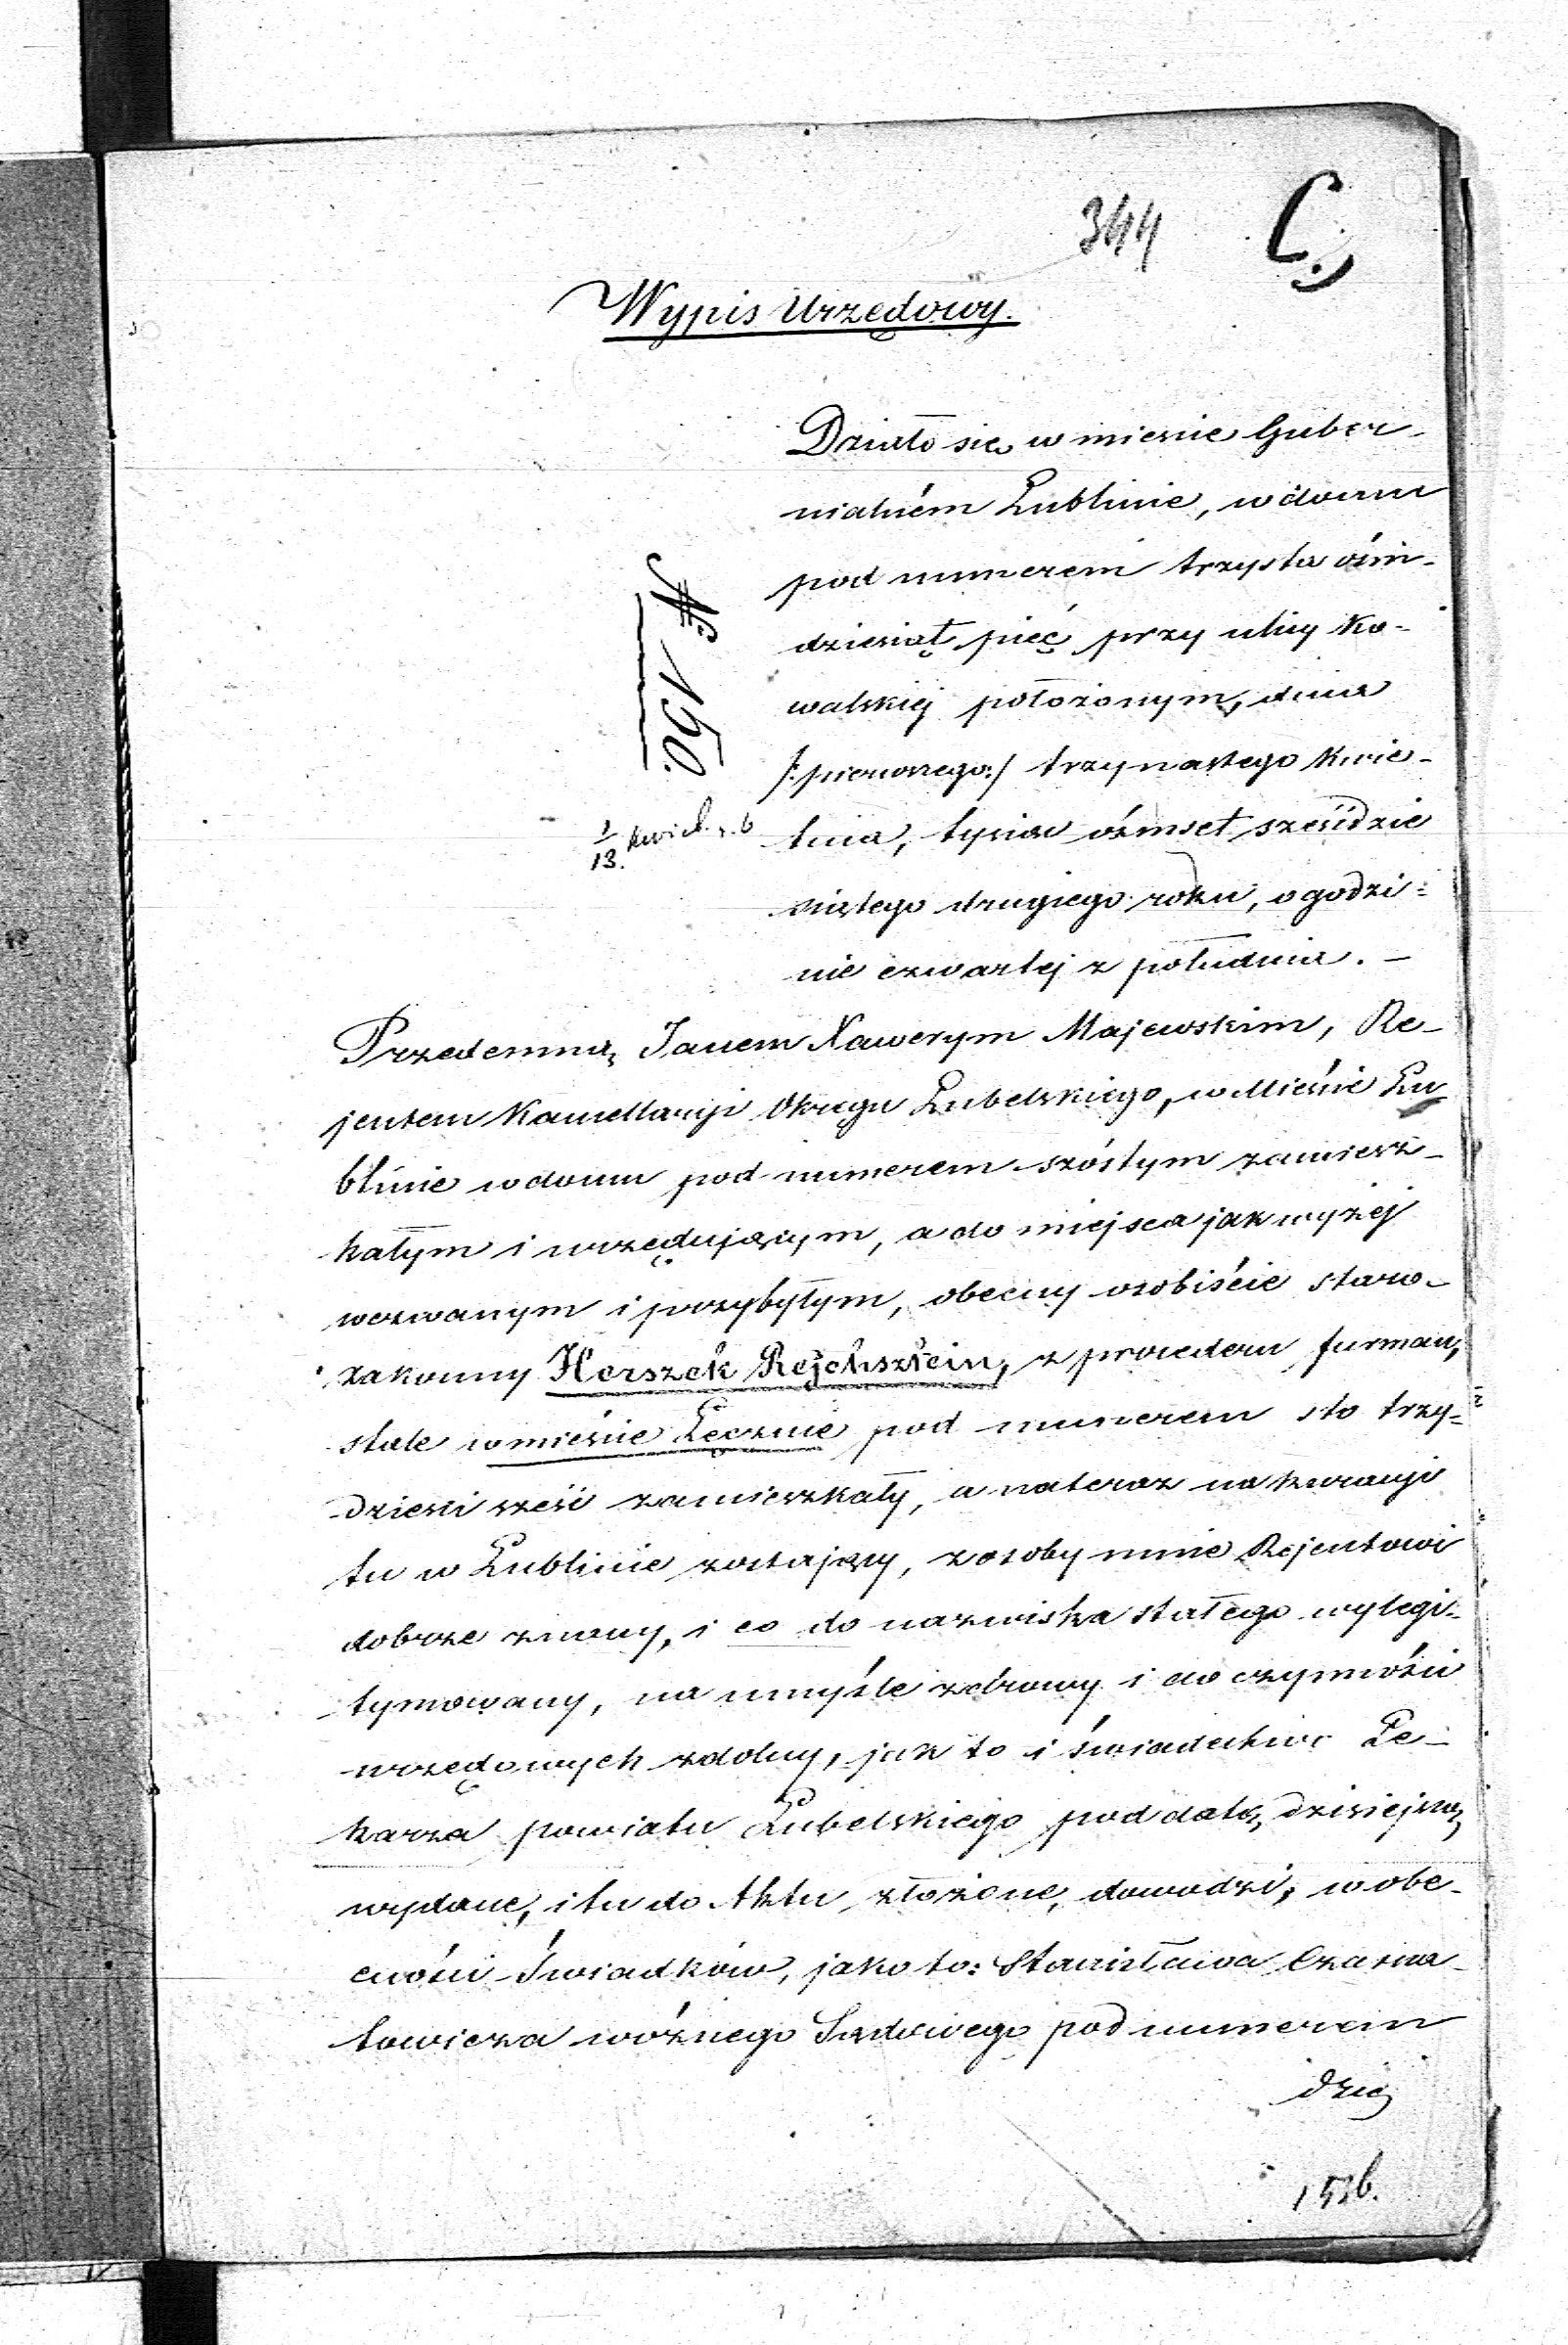 344 C.
Wypis Urzędowy.
Działo się w mieście Guber-
nialném Lublinie, w domu
pod numerem trzysta ośm-
dziesiąt pięć przy ulicy Ko-
walskiej położonym, dnia
/:pierwszego:/ trzynastego Kwie-
tnia, tysiąc ośmset sześćdzie
siątego drugiego roku, o godzi-
nie czwartej z południa. -
№ 150.
1/13. Kwiet. r. b
Przedemną Janem Xawerym Majewskim, Re-
jentem Kancellaryi Okręgu Lubelskiego, w Mieście Lu
blinie w domu pod numerem szóstym zamiesz-
kałym i urzędującym, a do miejsca jak wyżej
wezwanym i przybyłym, obecny osobiście staro-
zakonny Herszek Rejchsztein, z procederu furman,
stale w mieście Łęcznie pod numerem sto trzy-
dzieści sześć zamieszkały, a nateraz na kuracyi
tu w Lublinie zostający, z osoby mnie Rejentowi
dobrze znany, i co do nazwiska stałego wylegi-
tymowany, na umyśle zdrowy i do czynności
urzędowych zdolny, jak to i świadectwo Le-
karza powiatu Lubelskiego pod datą dzisiejszą
wydane, i tu do Aktu złożone, dowodzi, w obe-
cności Świadków, jako to: Stanisława Czarna-
towicza woźnego Sądowego pod numerem
dzie
153b.